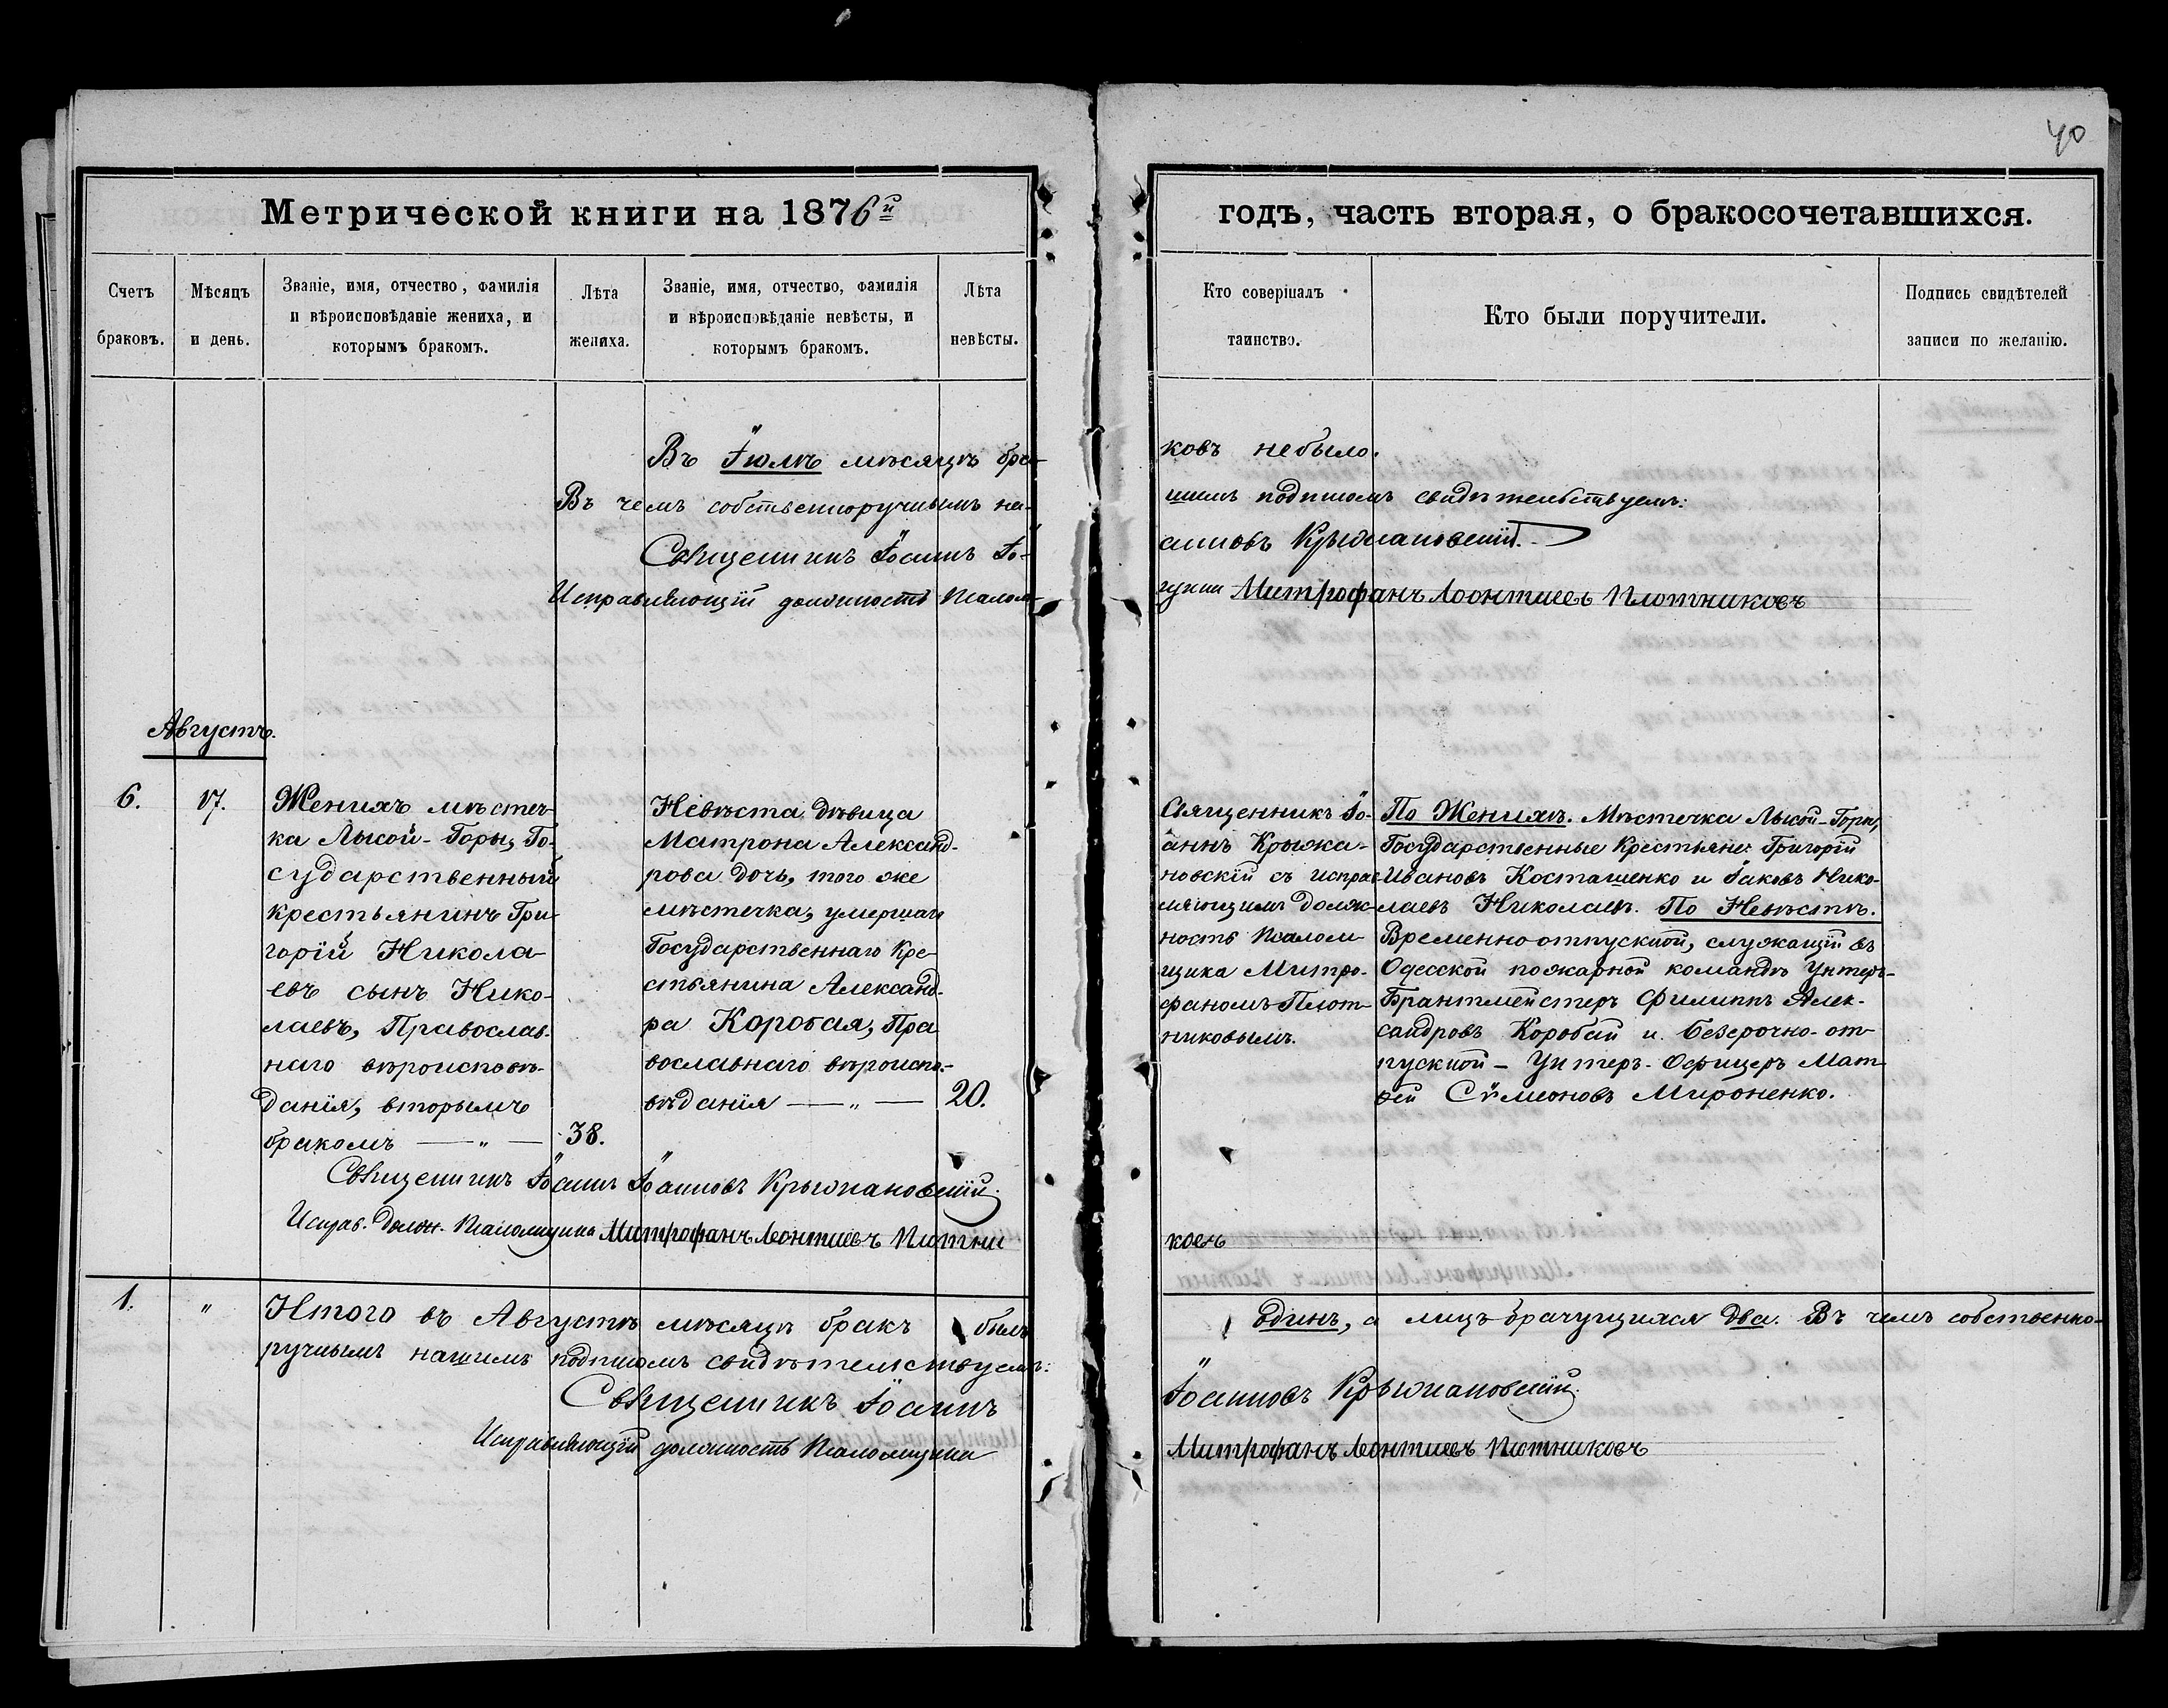 40
Метрической книги на 1876й
годъ, часть вторая, о бракосочетавшихся.
Счетъ браковъ.
Мѣсяцъ и день.
Званіе, имя, отчество, фамилія
и вѣроисповѣданіе жениха, и
которымъ бракомъ.
Лѣта жениха.
Званіе, имя, отчество, фамилія
и вѣроисповѣданіе невѣсты, и
которымъ бракомъ.
Лѣта невѣсты.
Кто совершалъ
таинство.
Кто были поручители.
Подпись свидѣтелей
записи по желанію.
Въ Іюлѣ мѣсяцѣ бра-
ковъ небыло.
Въ чемъ собственноручнымъ на-
шимъ подписомъ свидѣтельствуемъ:
Священникъ Іоаннъ Іо-
анновъ Крыжановскій.
Исправляющій должность Псалом-
щика Митрофанъ Леонтиевъ Плотниковъ
Августъ.
6.
17.
Женихъ мѣстеч-
ка Лысой-Горы, Го-
сударственный
крестьянинъ Гри-
горій Никола-
евъ сынъ Нико-
лаевъ, Православ-
наго вѣроисповѣ-
данія, вторымъ
бракомъ — „ —
38.
Невѣста дѣвица
Матрона Александ-
рова дочь, того же
мѣстечка, умершаго
Государственнаго Кре-
стьянина Александ-
ра Коробая, Пра
вославнаго вѣроиспо-
вѣданія — „ —
20.
Священникъ Іо-
аннъ Крыжа-
новскій съ исправ-
ляющимъ долж-
ность Псалом-
щика Митро-
фаномъ Плот-
никовымъ.
По Женихѣ. Мѣстечка Лысой-Горы,
Государственные Крестьяне: Григорій
Ивановъ Косташенко и Іаковъ Нико-
лаевъ Николаевъ. По Невѣстѣ.
Временноотпускной, служащій въ
Одесской пожарной командѣ Унтеръ-
Брантмейстеръ Филиппъ Алек-
сандровъ Коробай и Безсрочно-от-
пускной - Унтеръ-Офицеръ Мат-
вей Сѵмеоновъ Мироненко.
Священникъ Іоаннъ Іоанновъ Крыжановскій.
Исправ. долж. Псаломщика Митрофанъ Леонтиевъ Плотни
ковъ
1.
„
Итого въ Августѣ мѣсяцѣ бракъ былъ
одинъ, а лицъ брачущихся два. Въ чемъ собственно-
ручнымъ нашимъ подписомъ свидѣтельствуемъ:
Священникъ Іоаннъ
Іоанновъ Крыжановскій.
Исправляющій должность Псаломщика
Митрофанъ Леонтиевъ Плотниковъ